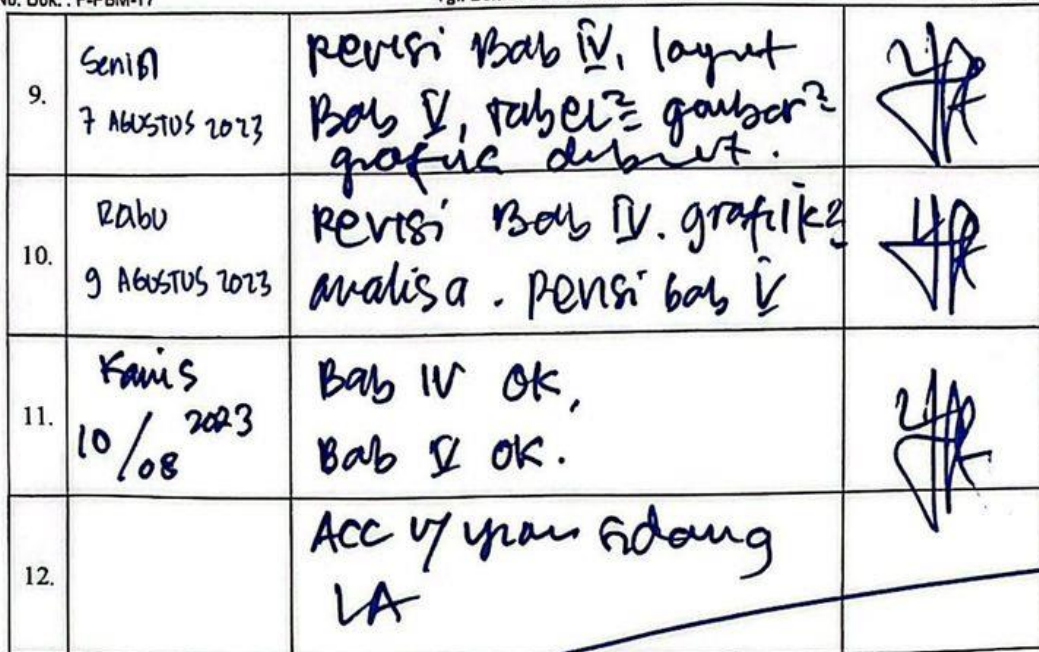 No. Dok. : F-PBM-17
9.
Senin
7 AGUSTUS 2023
Revisi Bab IV, layout
Bab V, tabel² gambar²
grafik dibuat.
10.
Rabu
9 AGUSTUS 2023
Revisi Bab IV. grafik²
analisa. Revisi bab V
11.
Kamis
10/08 2023
Bab IV OK,
Bab V OK.
12.
ACC u/ ujian sidang
LA